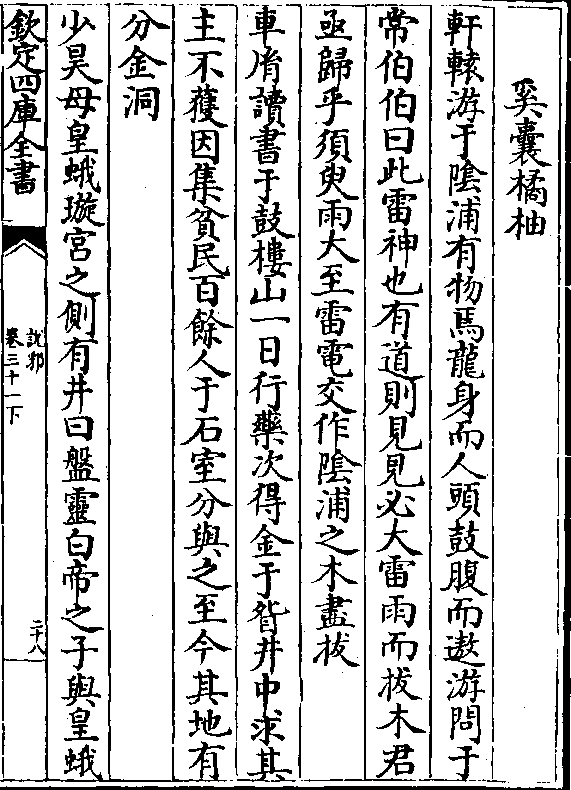 奚囊橘柚
軒轅游于陰浦有物焉龍身而人頭鼓腹而遨游問于
常伯伯曰此雷神也有道則見見必大雷雨而拔木君
亟歸乎須臾雨大至雷電交作陰浦之木盡拔
車胤讀書于鼓樓山一日行藥次得金于眢井中求其
主不獲因集貧民百餘人于石室分與之至今其地有
分金洞
少昊母皇蛾璇宮之側有井曰盤靈白帝之子與皇蛾
欽定四庫全書
說郛
卷三十一下
二十八